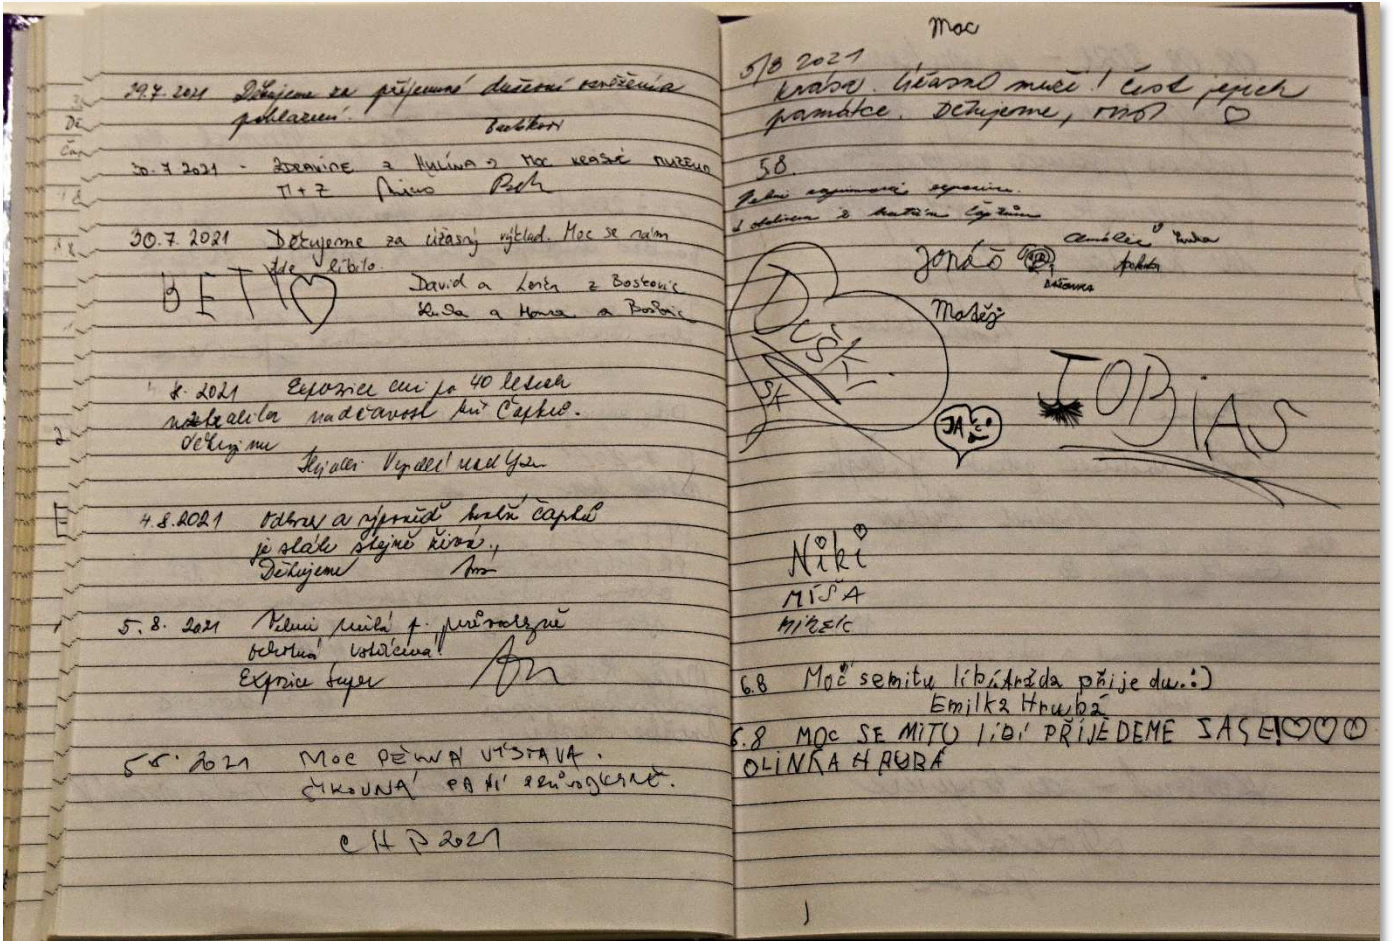 29.7.2021 Děkujeme za příjemné duševní osvěžení a
pohlazení.
30.7.2021 - ZDRAVÍME z HULÍNA MOC KRÁSNÉ MUZEUM
M + Z
30.7.2021 Děkujeme za úžasný výklad. Moc se nám
zde líbilo.
BETY
David a z Boskovic
a Honza a
8. 2021 Expozice ani po 40 letech
neztratila nadčasovost bří Čapků.
děkujeme
4.8.2021 Odkaz a výpověď bratří Čapků
je stále stejně živá.,
Děkujeme
5.8.2021 Velmi milá p. průvodkyně
ochotná vstřícná!
Expozice super
5.8. 2021 MOC PĚKNÁ VÝSTAVA.
ŠIKOVNÁ PANÍ PRŮVODKYNĚ.
CHP 2021
Moc
5/8 2021
krása. Úžasní muži! Čest jejich
památce. Děkujeme,
5.8.
Velmi expozice.
S obdivem k bratřím Čapkům
Jonáš
DÁŠENKA
Matěj
TOBiAS
JA
Niki
MÍŠA
MIREK
6.8 Moc semitu líbí. Atážda přijedu.:)
Emilka Hrubá
6.8 MOC SE MITU LÍBÍ PŘIJEDEME ZASE!
OLINKA HRUBÁ